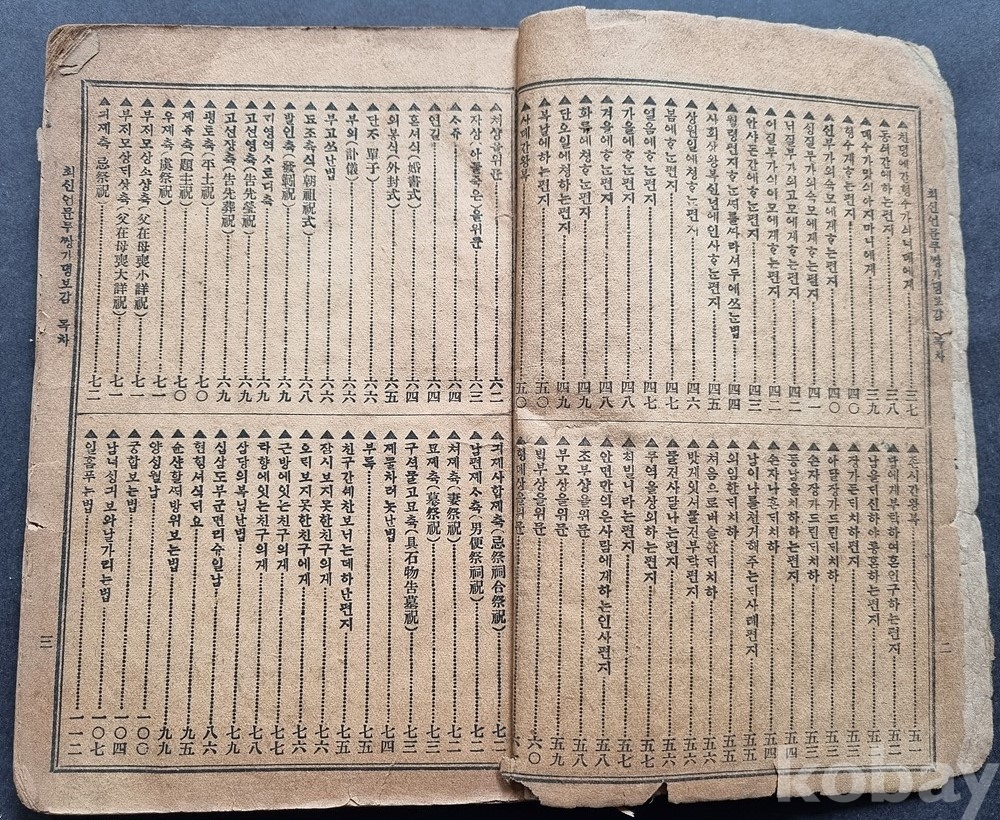 최신언문무쌍가뎡보감 (목차
▲친뎡에간형수가싀누의에게 三七
▲동셔간에하는편지 三八
▲뎨수가맛싀아지마니에게 三九
▲형수게ᄒᆞ는편지 四〇
▲신부가싀숙모에게ᄒᆞ는편지 四一
▲싱질부가의숙모에게ᄒᆞ는편지 四一
▲너질부가의고모에게ᄒᆞ는편지 四二
▲이질부가싀이모에게ᄒᆞ는편지 四二
▲안사돈간에ᄒᆞ는편지 四三
▲월령편지ᄒᆞ는셔를ᄯᅡ라셔두에쓰는법 四四
▲사회상왕복신년에인사ᄒᆞ는편지 四五
▲상원일에쳥ᄒᆞ는편지 四六
▲봄에ᄒᆞ는편지 四七
▲일음에ᄒᆞ는편지 四七
▲가을에ᄒᆞ는편지 四八
▲겨을에ᄒᆞ는편지 四八
▲화류에쳥ᄒᆞ는편지 四九
▲단오일에쳥하는편지 四九
▲복날에하는편지 五〇
▲사뎨간왕복 五〇
▲혼시간왕복 五一
▲벗에게부탁하여혼인구하는편지 五二
▲남을뎐신하야쳥혼하는편지 五二
▲쟝가든ᄃᆡ치하편지 五三
▲아달쟝가드린ᄃᆡ치하 五三
▲손자쟝가드린ᄃᆡ치하 五三
▲등남을치하하는편지 五四
▲손자나흔ᄃᆡ치하 五四
▲남이나를쳔거해주는ᄃᆡ사례편지 五五
▲외임한ᄃᆡ치하 五五
▲처음으로벼슬한ᄃᆡ치하 五六
▲밧게잇셔물건부탁편지 五六
▲물건사달나는편지 五七
▲무역을상의하는편지 五七
▲치빙니라는편지
▲안면만의은사람에게하는인사편지 五八
▲조부상을위문 五九
▲부모상을위문 五九
▲빅부상을위문 六〇
▲형뎨상을위문
二
▲처상을위문 六二
▲자상(아들죽은)을위문 六三
▲소쥬 六四
▲연길 六四
▲혼셔식(婚書式) 六四
▲외봉식(外封式) 六五
▲단자(單子) 六六
▲부의(訃儀) 六六
▲부고쓰난법 六六
▲됴조축식(朝祖祝式) 六八
▲발인축(發靷祝) 六九
▲긔영역소로더축 六九
▲고션영축(告先塋祝) 六九
▲고션쟝축(告先葬祝) 六九
▲평토축(平土祝) 七〇
▲제쥬축(題主祝) 七〇
▲우제축(虞祭祝) 七一
▲부지모상소상축(父在母喪小詳祝) 七一
▲부지모상ᄃᆡ상축(父在母喪大詳祝) 七一
▲긔제축(忌祭祝) 七二
▲긔제사합제축(忌祭祠合祭祝) 七二
▲남편제사축(男便祭祠祝) 七二
▲처제축(妻祭祝) 七二
▲묘제축(墓祭祝) 七三
▲구셕물고묘축(具石物告墓祝) 七三
▲제물차려놋난법 七四
▲부록 七五
▲친구간에찬보너는데하난편지 七五
▲잠시보지못한친구의게 七六
▲오릭보지못한친구에게 七六
▲근방에잇는친구의게 七七
▲락향에잇는친구의게 七八
▲상당의복닙난법 七九
▲십삼도부군면리슈일남 八六
▲현힝셔식ᄃᆡ요 九九
▲순산할ᄯᅢ방위보는법 九九
▲양성월남 一〇〇
▲궁합보는법 一〇四
▲남녀싱긔보와날가리는법 一〇七
▲일홈푸는법 一一二
최신언문무쌍가뎡보감 목차
三
kobay